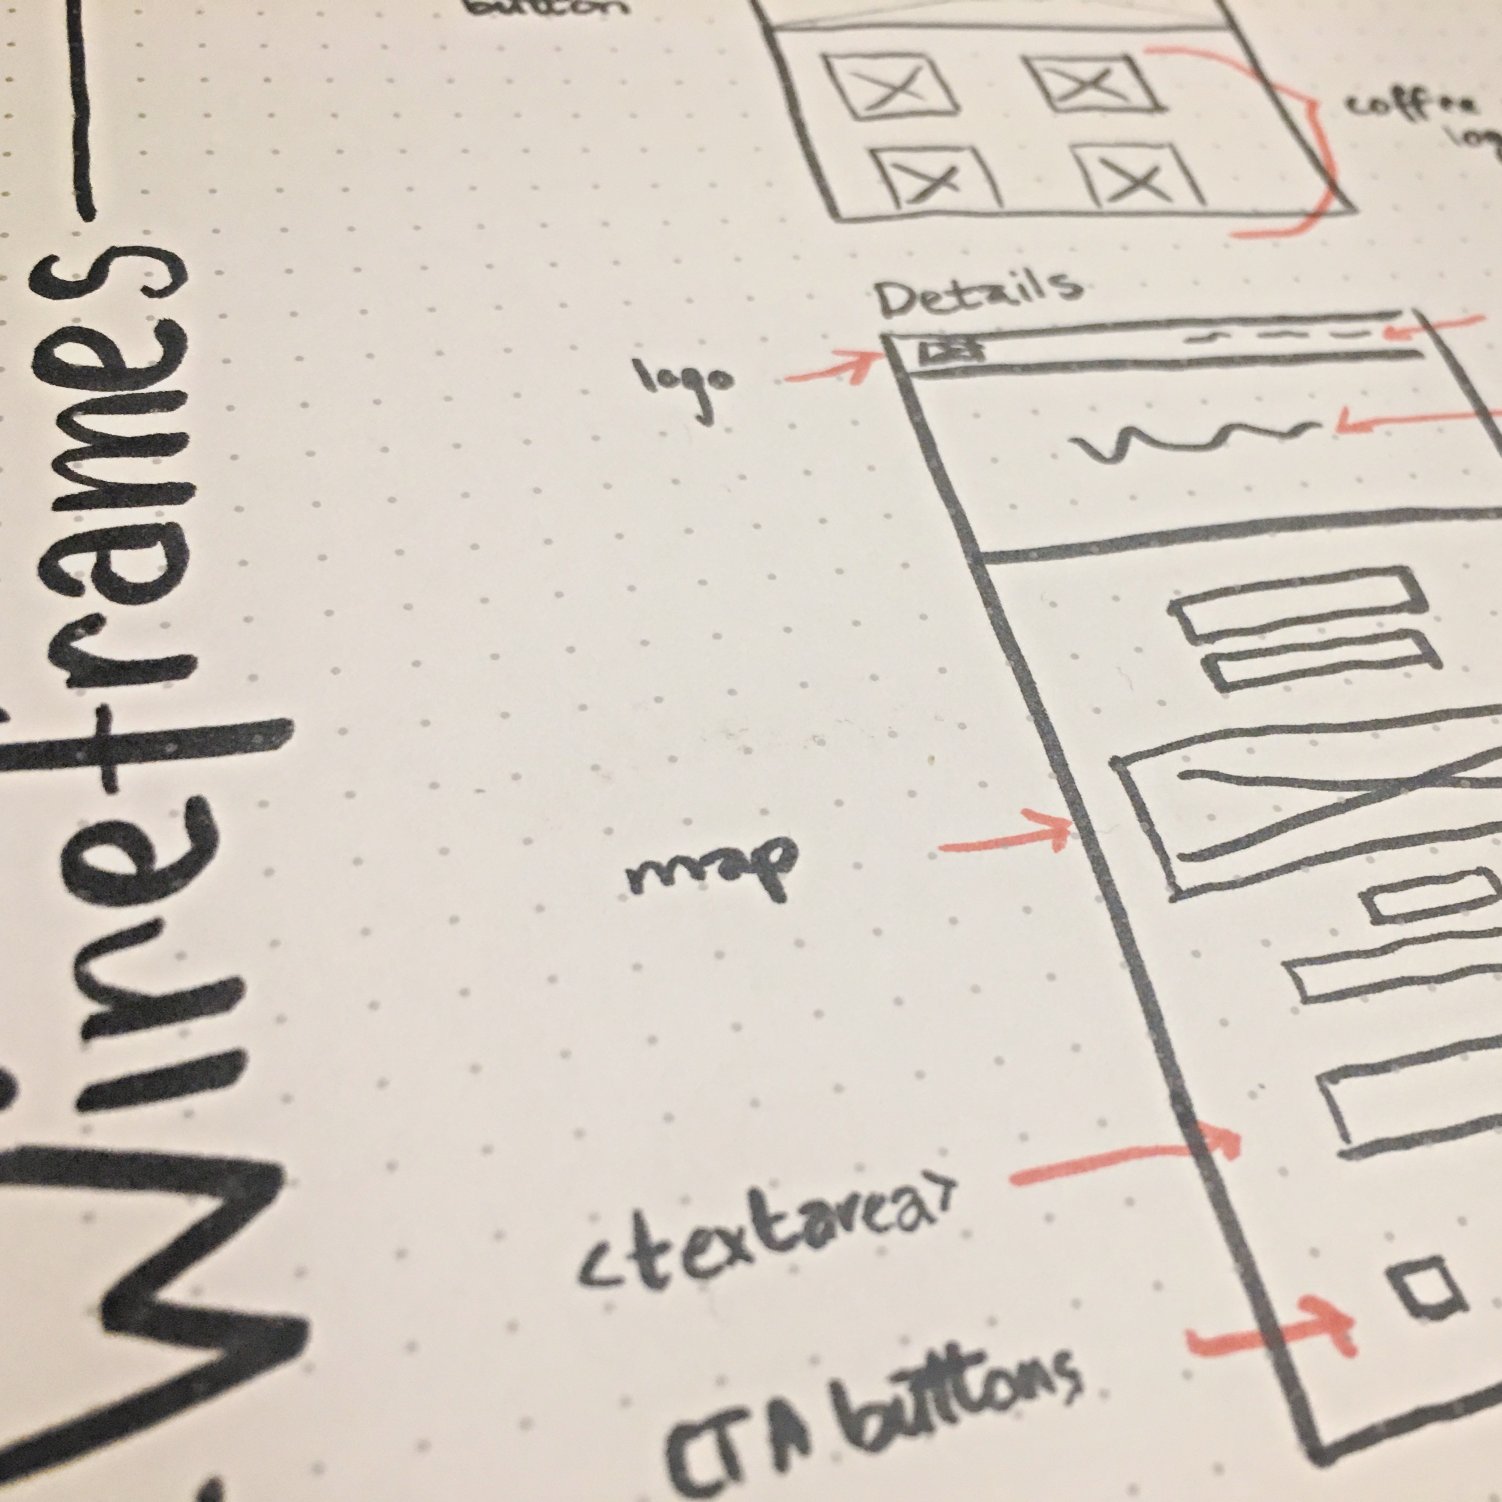 Wireframes
button
coffee
Details
logo
map
<textarea>
CTA buttons